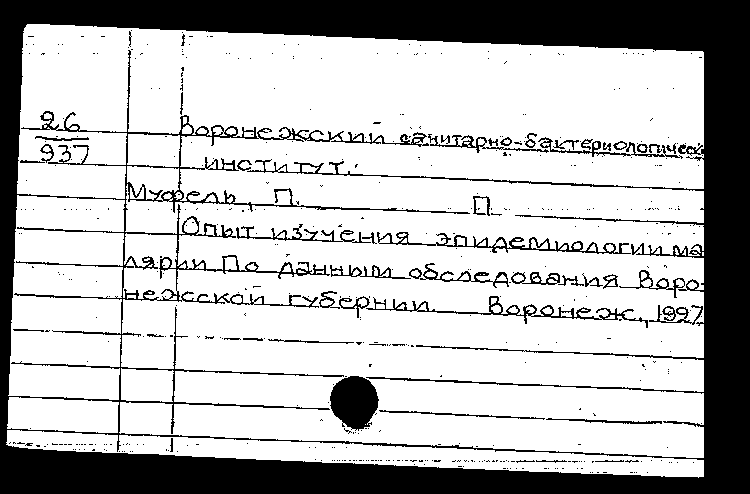 26
937
Воронежский санитарно-бактериологическ
институт.
Муфель, П. П
Опыт изучения эпидемиологии ма
лярии По данным обследования Воро-
нежской губернии. Воронеж., 1927